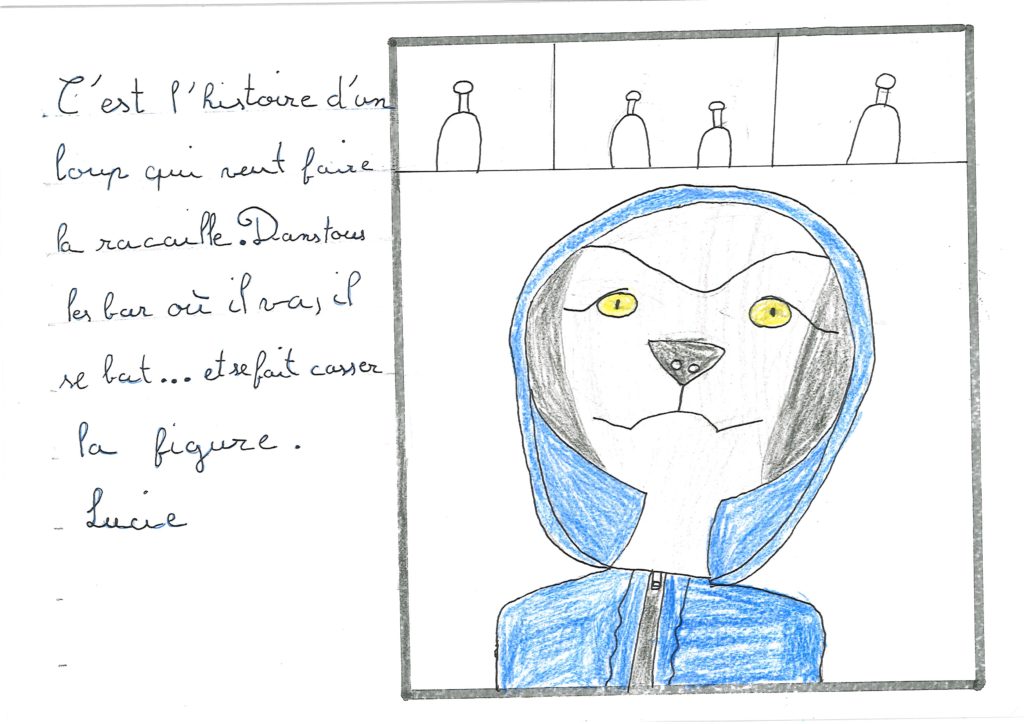 C'est l'histoire d'un
loup qui veut faire
la racaille. Dans tous
les bar où il va, il
se bat... et se fait casser
la figure.
Lucie